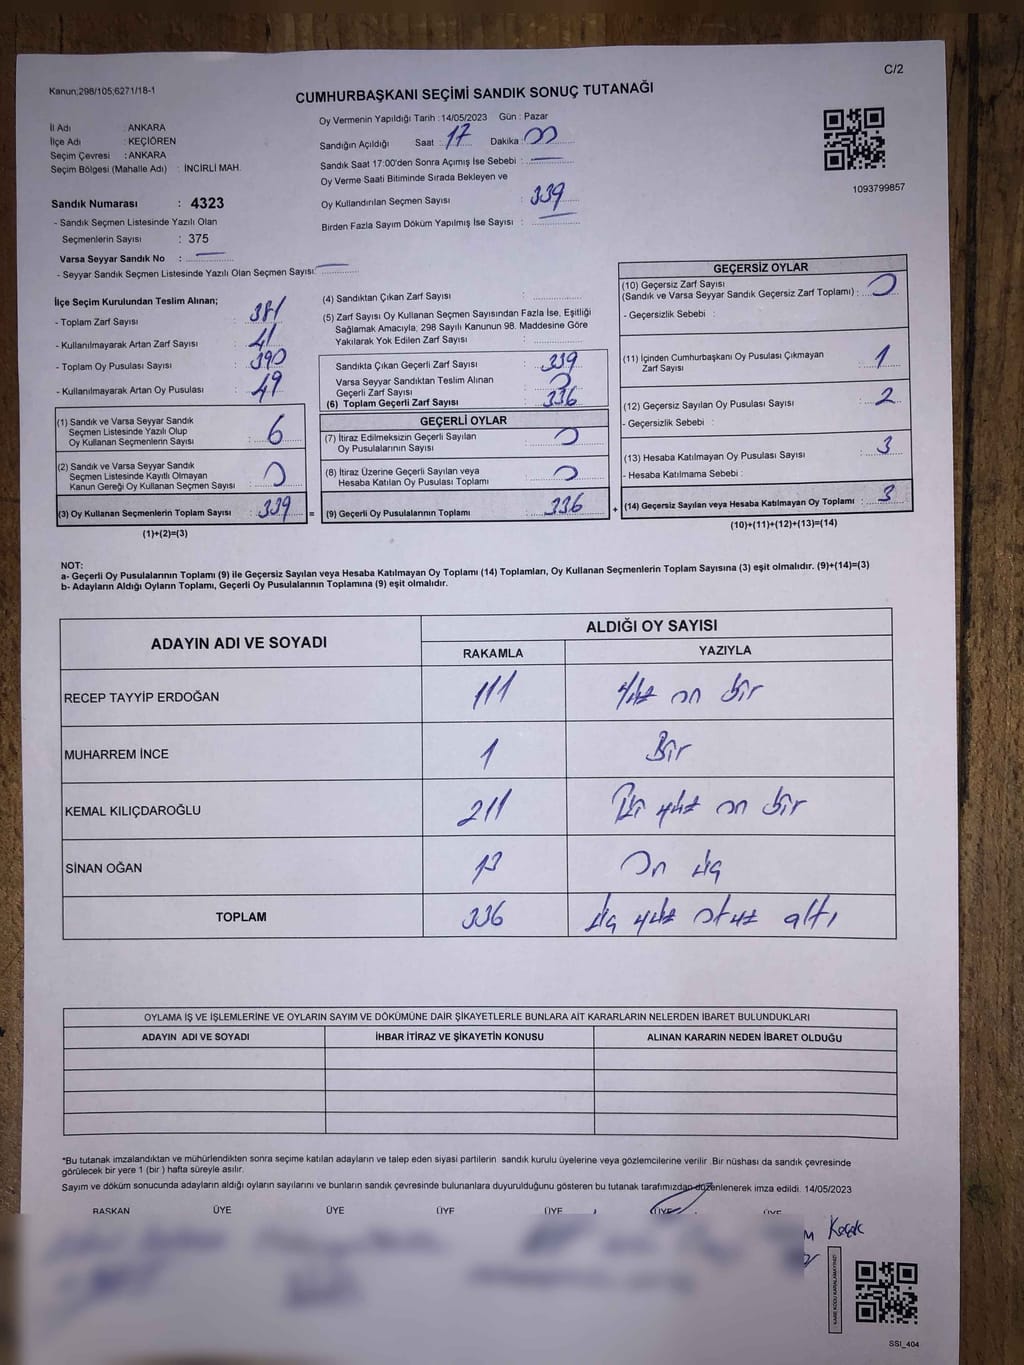 C/2
Kanun;298/105;6271/18-1
CUMHURBAŞKANI SEÇİMİ SANDIK SONUÇ TUTANAĞI
İl Adı : ANKARA
İlçe Adı : KEÇİÖREN
Seçim Çevresi : ANKARA
Seçim Bölgesi (Mahalle Adı) : İNCİRLİ MAH.
Sandık Numarası : 4323
- Sandık Seçmen Listesinde Yazılı Olan
Seçmenlerin Sayısı : 375
Varsa Seyyar Sandık No :
- Seyyar Sandık Seçmen Listesinde Yazılı Olan Seçmen Sayısı:
Oy Vermenin Yapıldığı Tarih : 14/05/2023 Gün : Pazar
Sandığın Açıldığı Saat : 17 Dakika : 00
Sandık Saat 17:00'den Sonra Açımış İse Sebebi :
Oy Verme Saati Bitiminde Sırada Bekleyen ve
Oy Kullandırılan Seçmen Sayısı : 339
Birden Fazla Sayım Döküm Yapılmış İse Sayısı :
1093799857
İlçe Seçim Kurulundan Teslim Alınan;
- Toplam Zarf Sayısı : 381
- Kullanılmayarak Artan Zarf Sayısı : 41
- Toplam Oy Pusulası Sayısı : 390
- Kullanılmayarak Artan Oy Pusulası : 49
(1) Sandık ve Varsa Seyyar Sandık
Seçmen Listesinde Yazılı Olup
Oy Kullanan Seçmenlerin Sayısı : 6
(2) Sandık ve Varsa Seyyar Sandık
Seçmen Listesinde Kayıtlı Olmayan
Kanun Gereği Oy Kullanan Seçmen Sayısı : 0
(3) Oy Kullanan Seçmenlerin Toplam Sayısı : 339 =
(1)+(2)=(3)
(4) Sandıktan Çıkan Zarf Sayısı :
(5) Zarf Sayısı Oy Kullanan Seçmen Sayısından Fazla İse, Eşitliği
Sağlamak Amacıyla; 298 Sayılı Kanunun 98. Maddesine Göre
Yakılarak Yok Edilen Zarf Sayısı :
Sandıkta Çıkan Geçerli Zarf Sayısı : 339
Varsa Seyyar Sandıktan Teslim Alınan
Geçerli Zarf Sayısı : 0
(6) Toplam Geçerli Zarf Sayısı : 336
GEÇERLİ OYLAR
(7) İtiraz Edilmeksizin Geçerli Sayılan
Oy Pusulalarının Sayısı : 0
(8) İtiraz Üzerine Geçerli Sayılan veya
Hesaba Katılan Oy Pusulası Toplamı : 0
(9) Geçerli Oy Pusulalarının Toplamı : 336 +
GEÇERSİZ OYLAR
(10) Geçersiz Zarf Sayısı
(Sandık ve Varsa Seyyar Sandık Geçersiz Zarf Toplamı) : 0
- Geçersizlik Sebebi :
(11) İçinden Cumhurbaşkanı Oy Pusulası Çıkmayan
Zarf Sayısı : 1
(12) Geçersiz Sayılan Oy Pusulası Sayısı : 2
- Geçersizlik Sebebi :
(13) Hesaba Katılmayan Oy Pusulası Sayısı : 3
- Hesaba Katılmama Sebebi :
(14) Geçersiz Sayılan veya Hesaba Katılmayan Oy Toplamı : 3
(10)+(11)+(12)+(13)=(14)
NOT:
a- Geçerli Oy Pusulalarının Toplamı (9) ile Geçersiz Sayılan veya Hesaba Katılmayan Oy Toplamı (14) Toplamları, Oy Kullanan Seçmenlerin Toplam Sayısına (3) eşit olmalıdır. (9)+(14)=(3)
b- Adayların Aldığı Oyların Toplamı, Geçerli Oy Pusulalarının Toplamına (9) eşit olmalıdır.
ADAYIN ADI VE SOYADI ALDIĞI OY SAYISI
RAKAMLA YAZIYLA
RECEP TAYYİP ERDOĞAN 111 Yüz on bir
MUHARREM İNCE 1 Bir
KEMAL KILIÇDAROĞLU 211 İki yüz on bir
SİNAN OĞAN 13 On üç
TOPLAM 336 üç yüz otuz altı
OYLAMA İŞ VE İŞLEMLERİNE VE OYLARIN SAYIM VE DÖKÜMÜNE DAİR ŞİKAYETLERLE BUNLARA AİT KARARLARIN NELERDEN İBARET BULUNDUKLARI
ADAYIN ADI VE SOYADI İHBAR İTİRAZ VE ŞİKAYETİN KONUSU ALINAN KARARIN NEDEN İBARET OLDUĞU
*Bu tutanak imzalandıktan ve mühürlendikten sonra seçime katılan adayların ve talep eden siyasi partilerin sandık kurulu üyelerine veya gözlemcilerine verilir .Bir nüshası da sandık çevresinde
görülecek bir yere 1 (bir ) hafta süreyle asılır.
Sayım ve döküm sonucunda adayların aldığı oyların sayılarını ve bunların sandık çevresinde bulunanlara duyurulduğunu gösteren bu tutanak tarafımızdan düzenlenerek imza edildi. 14/05/2023
BAŞKAN ÜYE ÜYE ÜYE ÜYE ÜYE ÜYE
KARE KODU KARALAMAYINIZ!
SSI_404